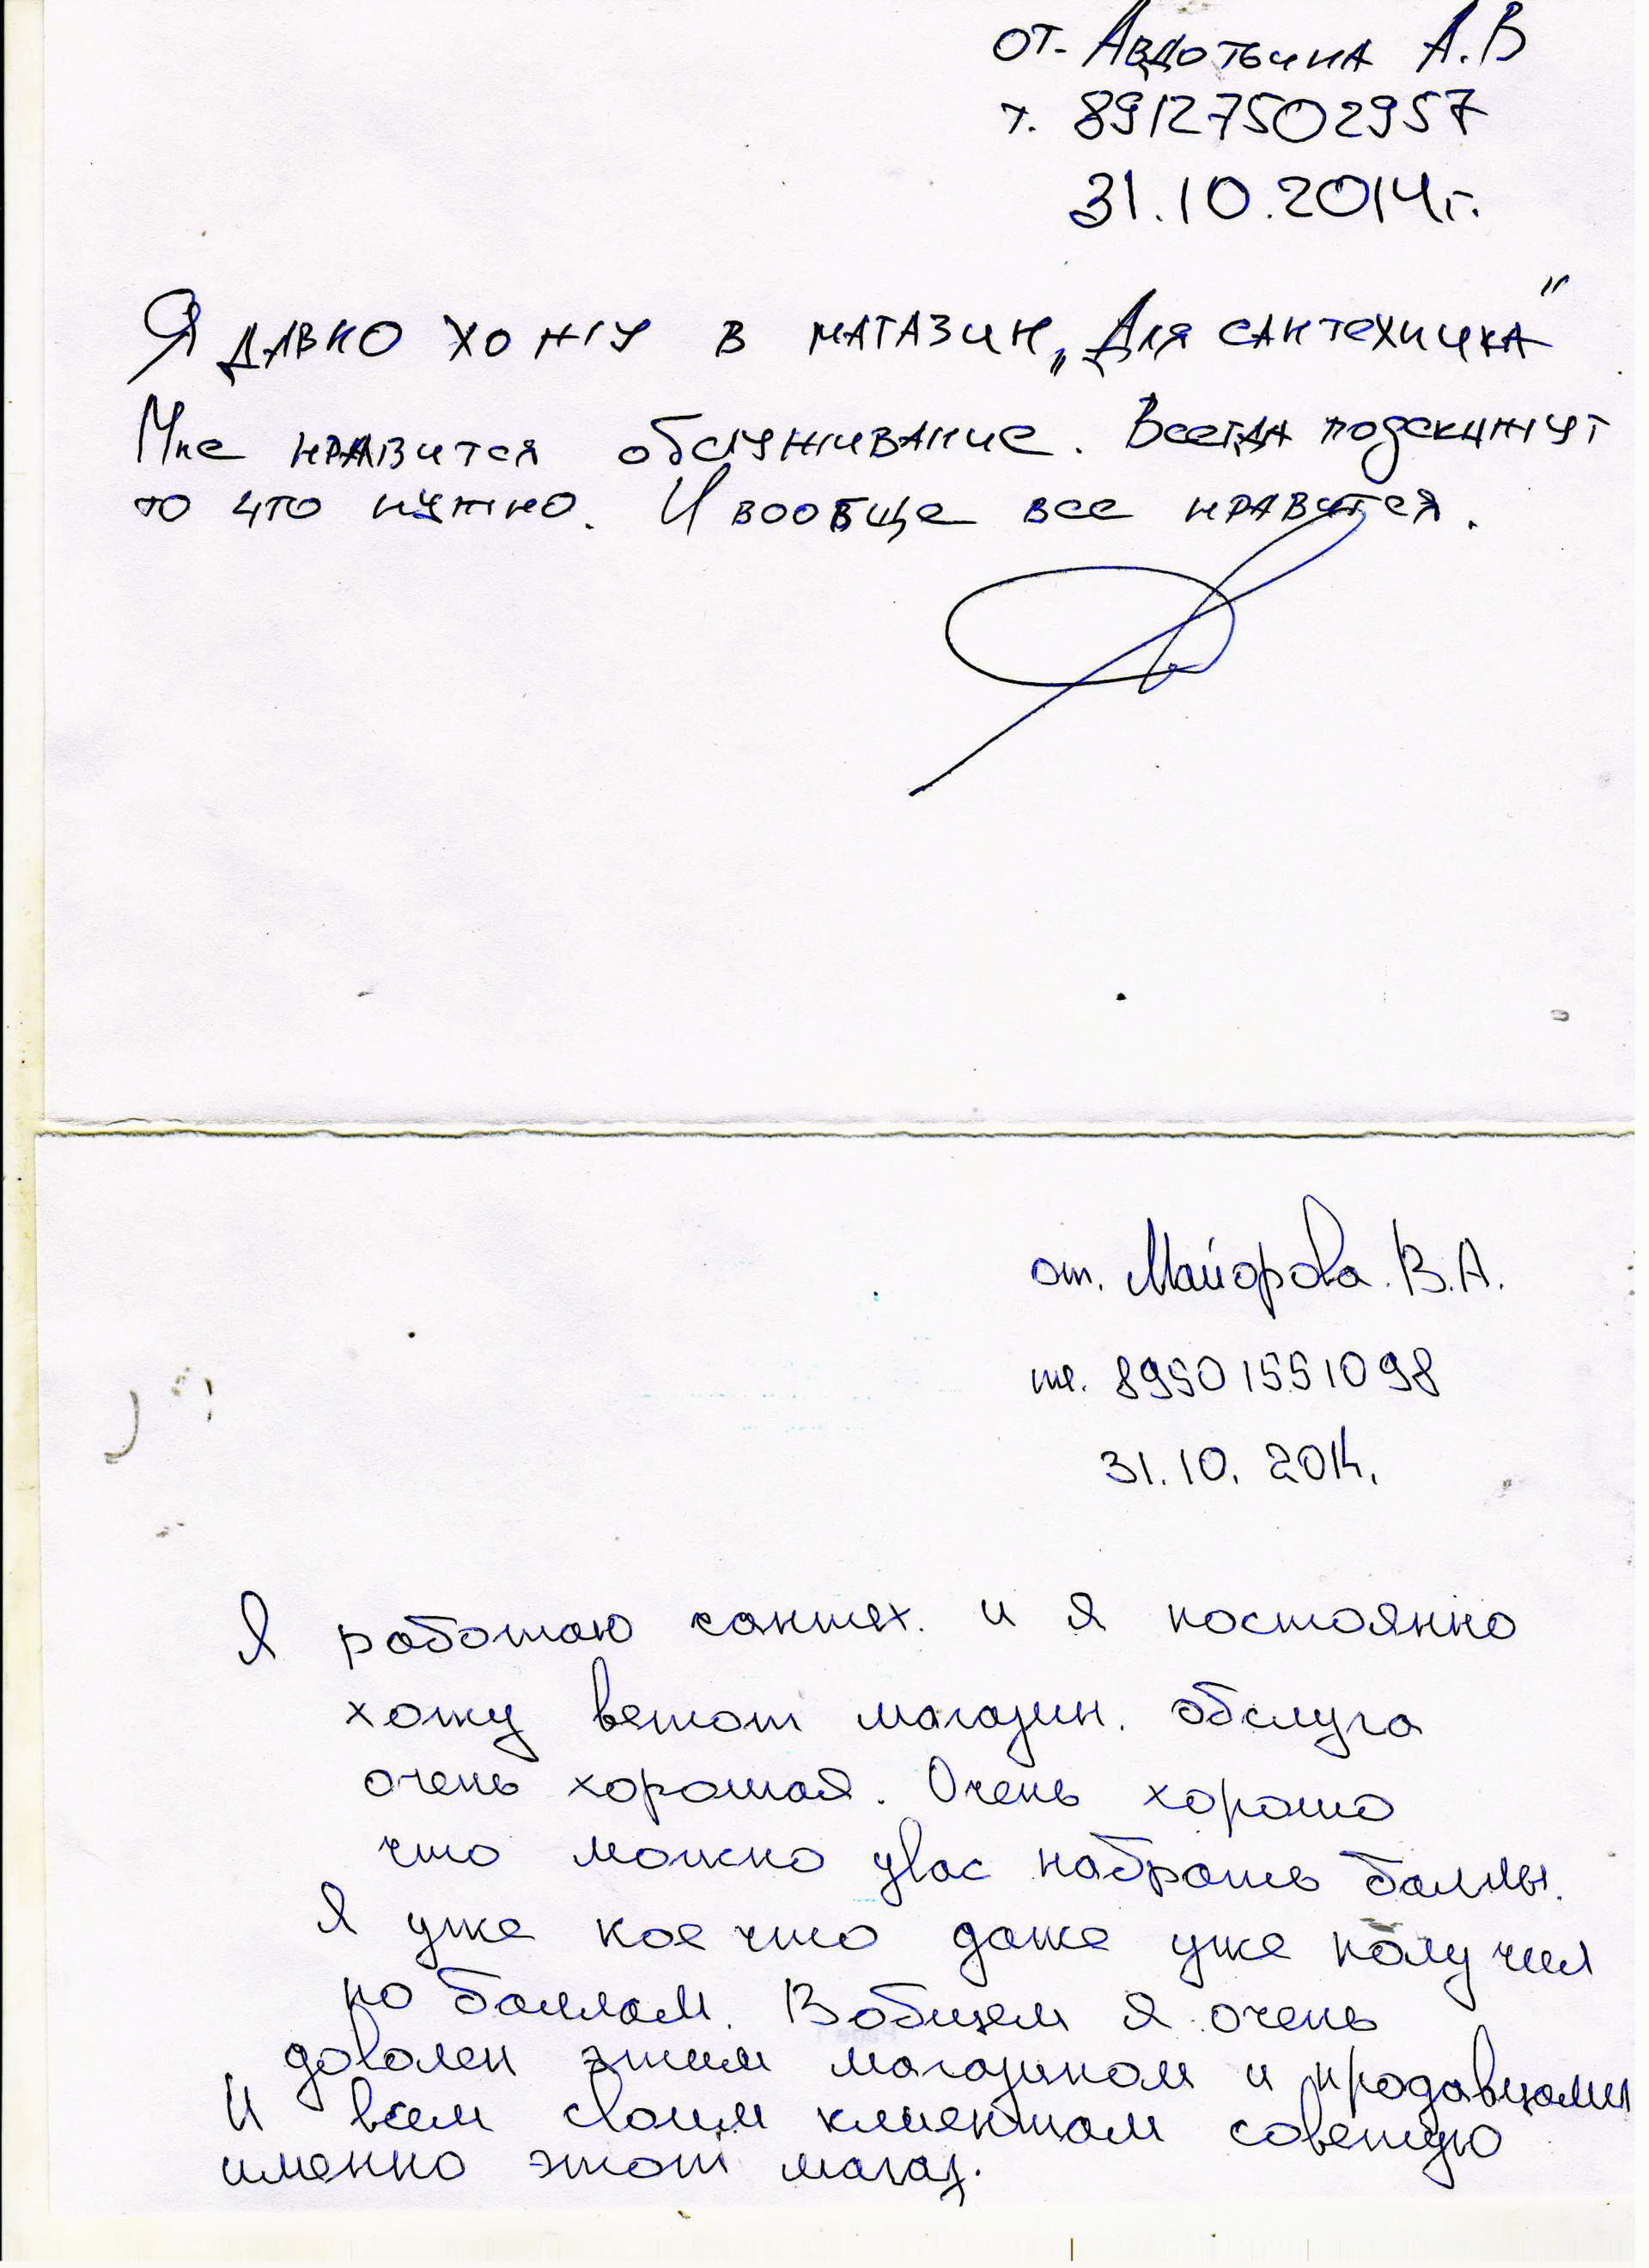 от- Авдотьина А.В
т. 89127502957
31.10.2014г.
Я давно хожу в магазин „Для сантехника"
Мне нравится обслуживание. Всегда подскажут
то что нужно. И вообще все нравится.
от. Майорова. В.А.
те. 89501551098
31.10. 2014.
Я работаю сантех. и я постоянно
хожу ветот магазин. обслуга
очень хорошая. Очень хорошо
что можно увас набрать баллы.
Я уже кое что даже уже получил
по баллам. Вобщем я очень
доволен этим магазином и продавцами
И всем своим клиентам советую
именно этот магаз.